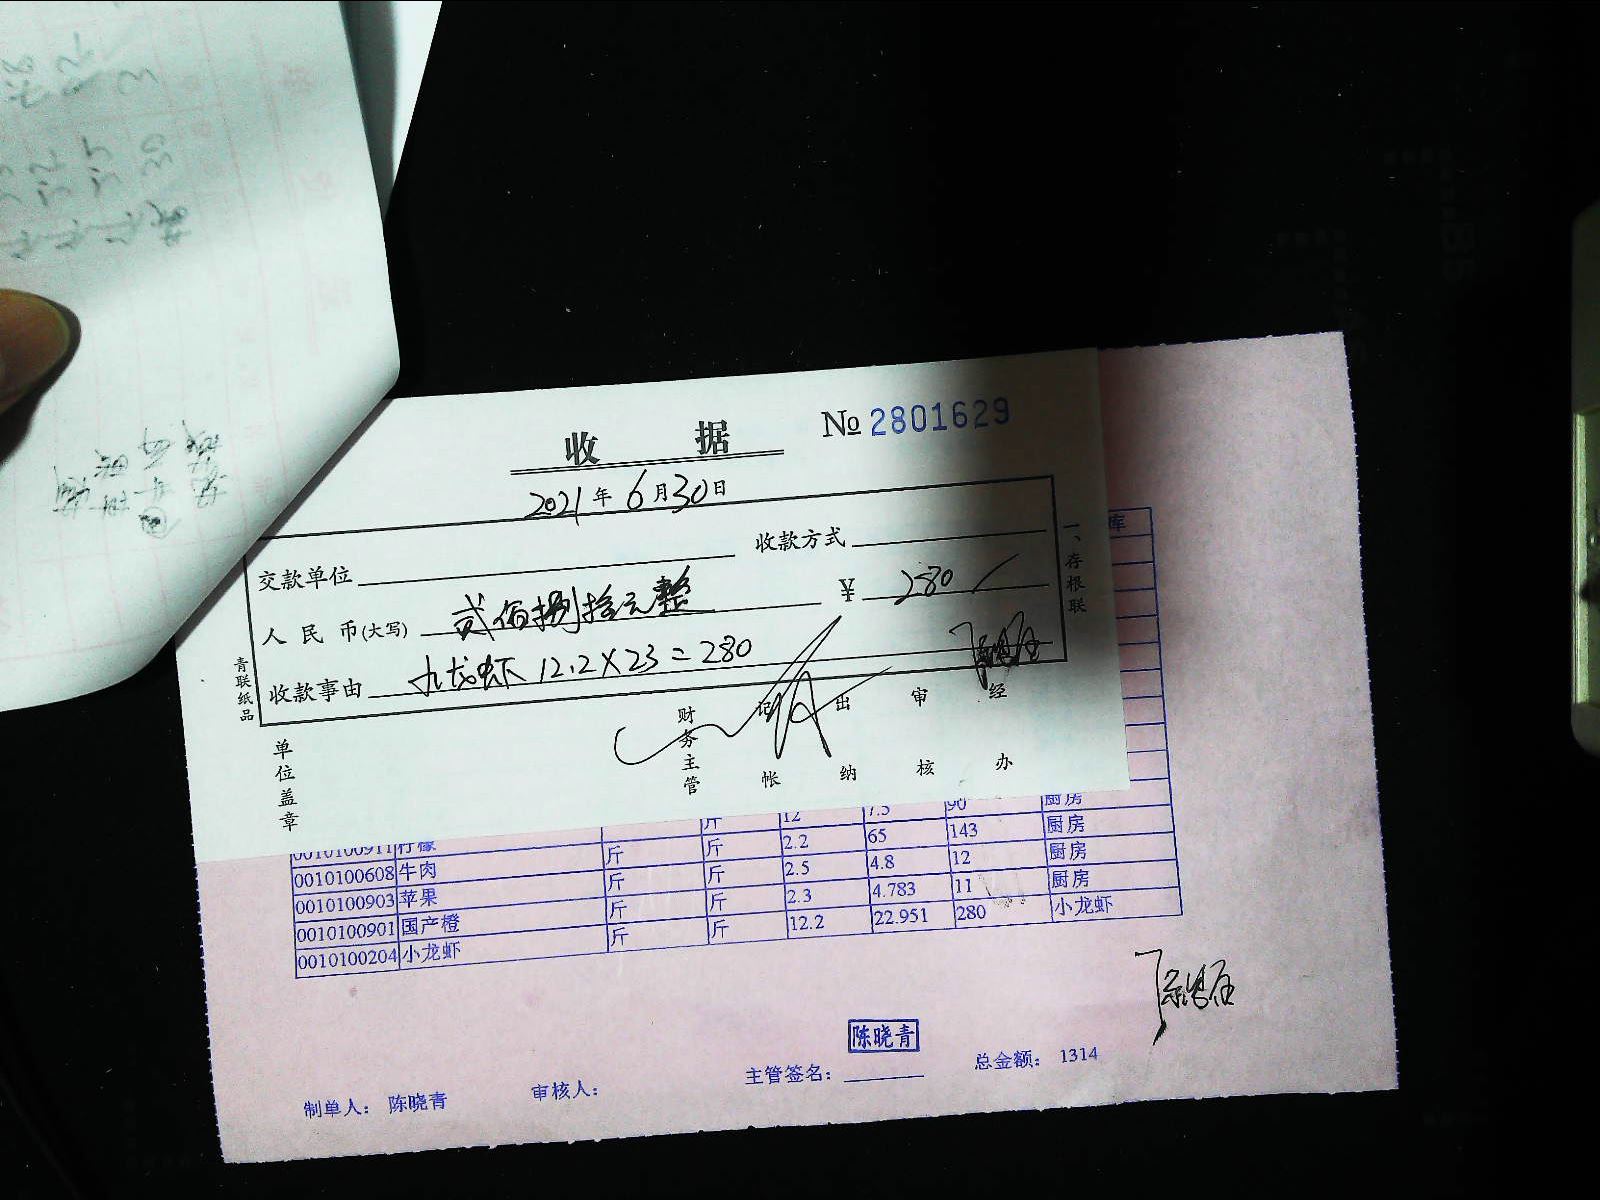 收 据 № 2801629
2021年6月30日
交款单位 收款方式
人民币(大写) 贰佰捌拾元整 ¥ 280
收款事由 九龙虾 12.2×23=280
青联纸品
一、存根联
单位盖章
财务主管 记帐 出纳 审核 经办
库
斤 12 7.5 90 厨房
0010100911 柠檬 斤 斤 2.2 65 143 厨房
0010100608 牛肉 斤 斤 2.5 4.8 12 厨房
0010100903 苹果 斤 斤 2.3 4.783 11 厨房
0010100901 国产橙 斤 斤 12.2 22.951 280 小龙虾
0010100204 小龙虾
陈晓青
制单人： 陈晓青 审核人： 主管签名： 总金额： 1314